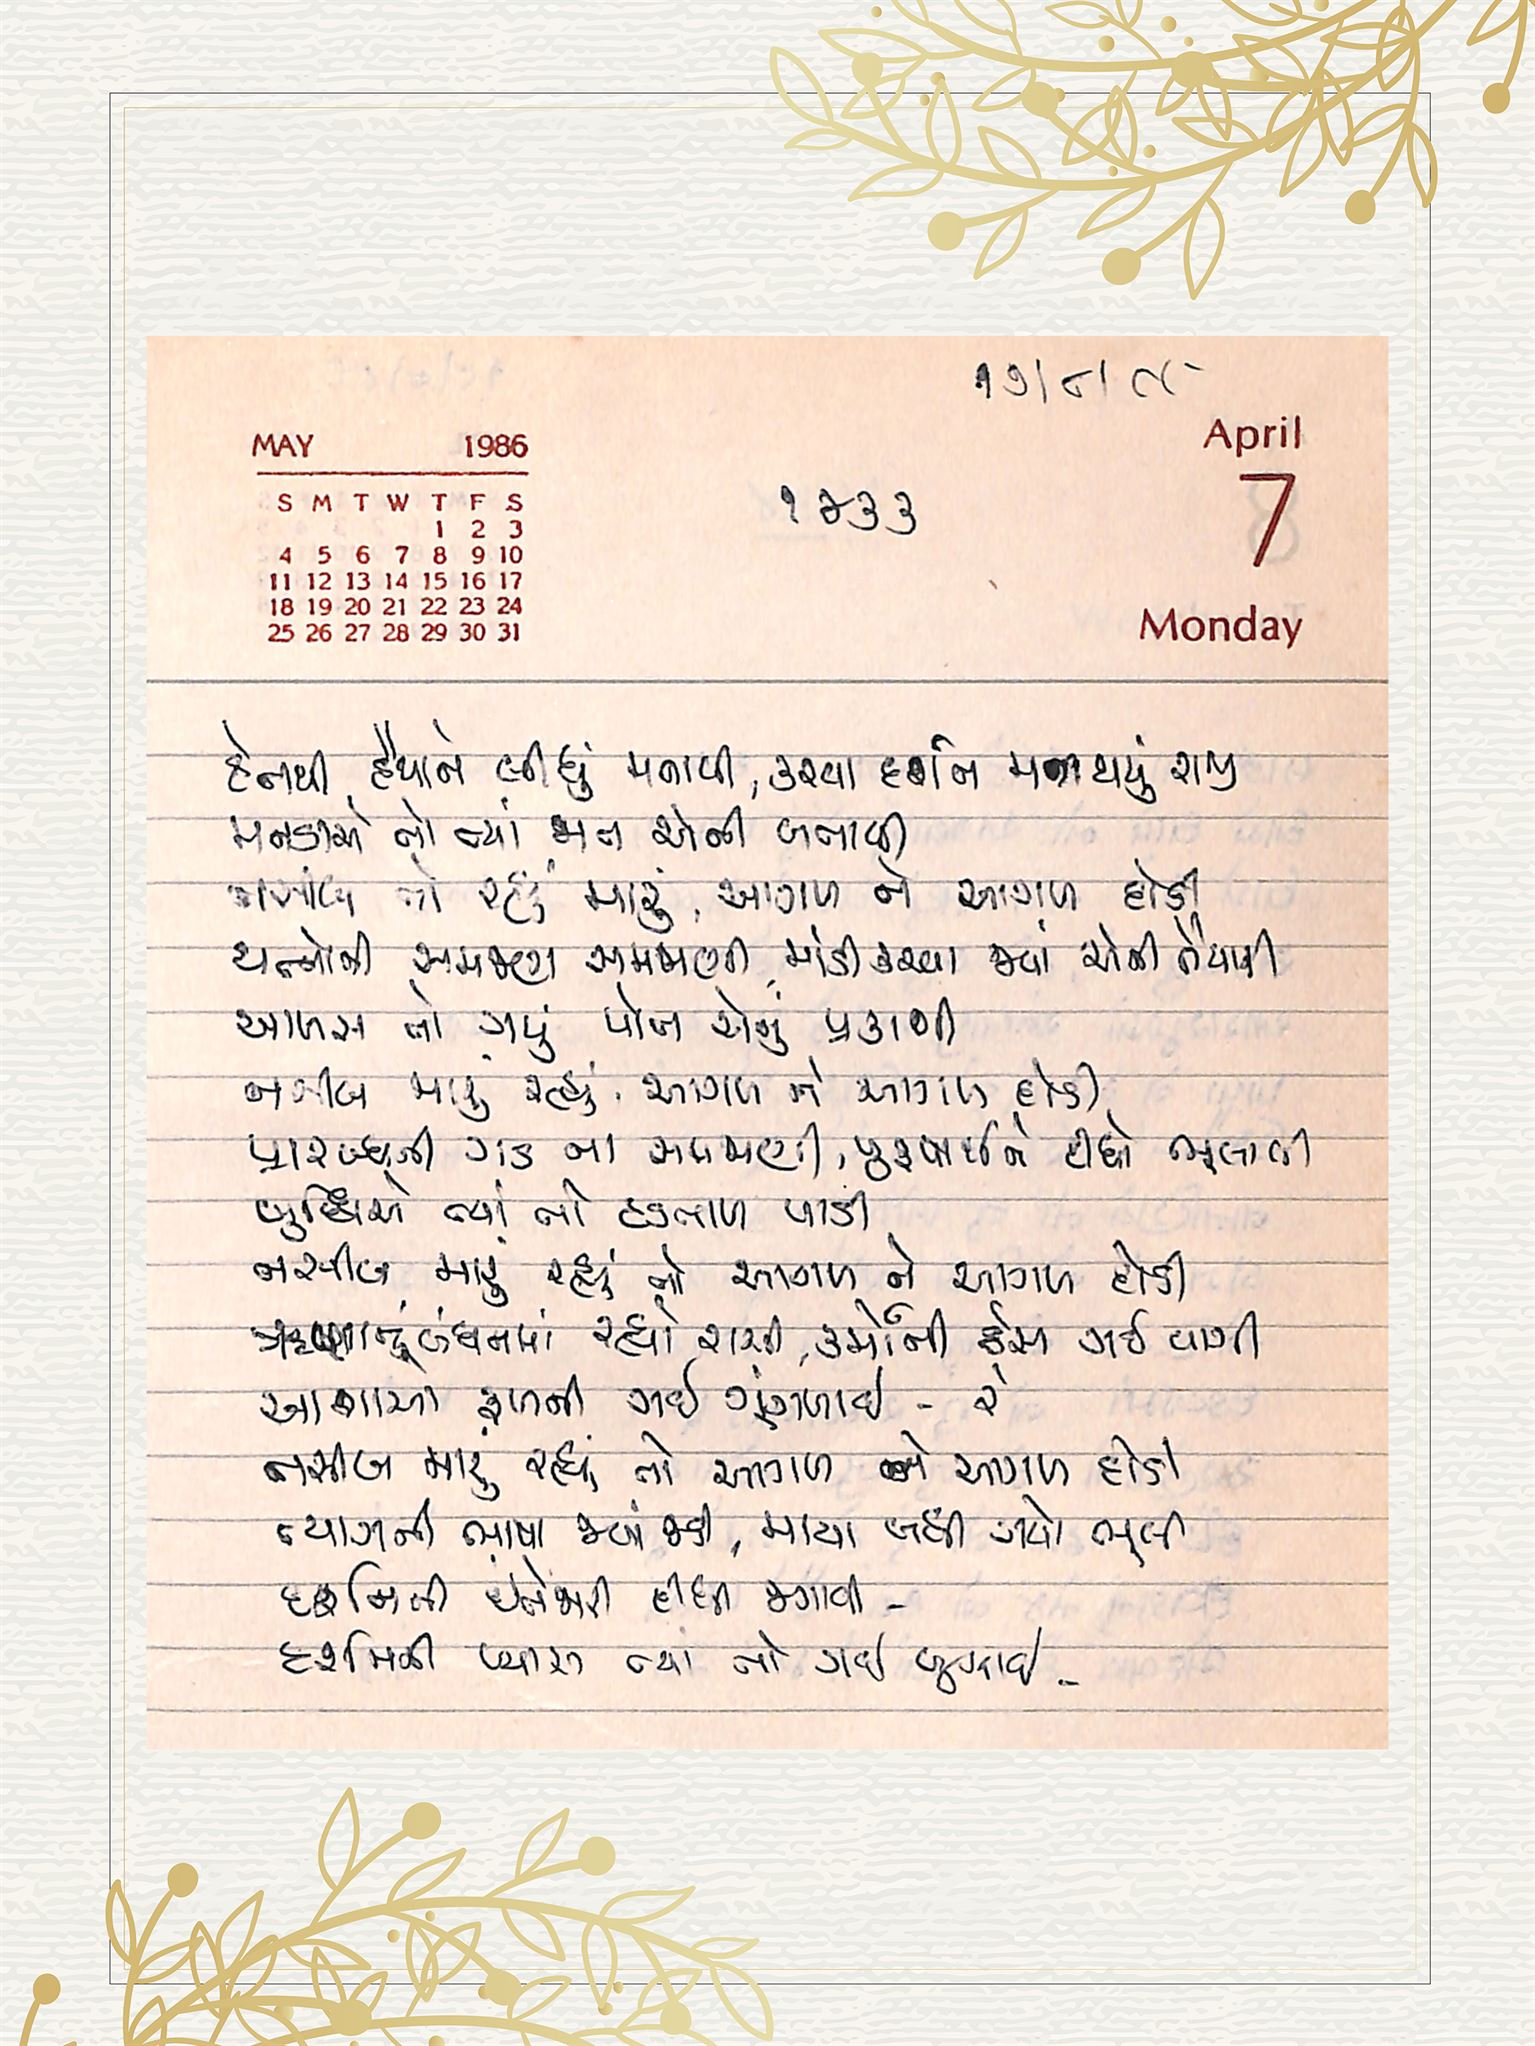 ૧૭/૮/૮૯
MAY 1986
April
S M T W T F S
1 2 3
7
4 5 6 7 8 9 10
11 12 13 14 15 16 17
18 19 20 21 22 23 24
25 26 27 28 29 30 31
Monday
હૈયાને લીધું મનાવી, કરવા દર્શન મન થયું રાજી
મનડાએ તો ત્યાં મન એની બનાવી
નસીબ તો રહ્યું મારું, આગળ ને આગળ દોડી
યત્નોની સમજણ સમજણી માંડી કરવા જ્યાં એની તૈયારી
આળસ તો ગયું પોત એનું પ્રકાશી
નસીબ મારું રહ્યું આગળ ને આગળ દોડી
પ્રારબ્ધની ગડ ના સમજણી, પુરુષાર્થને દીધો ભુલાવી
બુદ્ધિએ ત્યાં તો હડતાળ પાડી
નસીબ મારું રહ્યું તો આગળ ને આગળ દોડી
ઋણાનુબંધનમાં રહ્યો રાચી, કર્મોની ઠેસ ગઈ વાગી
આશાઓ ફળની ગઈ ગૂંગળાઈ - રે
નસીબ મારું રહ્યું તો આગળ ને આગળ દોડી
ત્યાગની ભાષા જ્યાં જડી, માયા બધી ગયો ભૂલી
દીધી જગાવી -
પ્યાસ ત્યાં તો ગઈ બુઝાઈ -